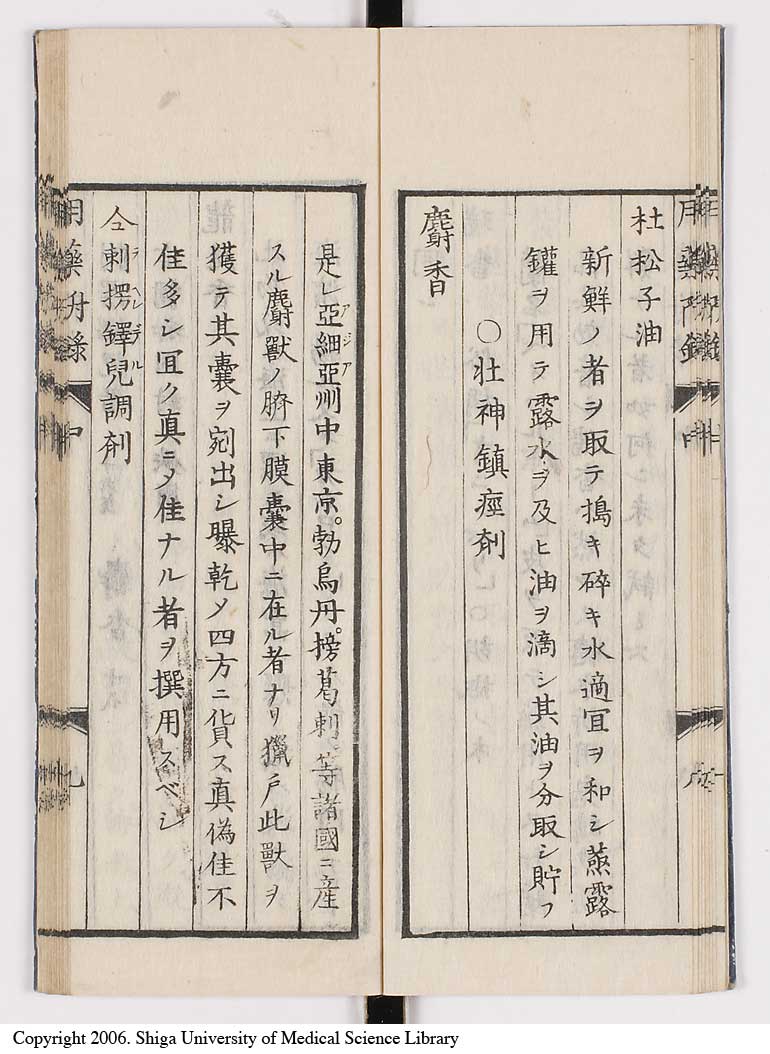 杜松子油
新鮮ノ者ヲ取テ搗キ碎キ水適冝ヲ和シ蒸露
鑵ヲ用テ露水ヲ及ヒ油ヲ滴シ其油ヲ分取シ貯フ
〇壮神鎮痙剤
麝香
是レ亞細亞州中東京。勃烏丹。榜葛剌等諸國ニ産
アジア
スル麝獸ノ臍下膜嚢中ニ在ル者ナリ獵戸此獸ヲ
獲テ其嚢ヲ剜出シ曝乾メ四方ニ貨ス真偽佳不
佳多シ冝ク真ニメ佳ナル者ヲ撰用スベシ
仝剌愣鐸兒調剤
中
九
Copyright 2006. Shiga University of Medical Science Library